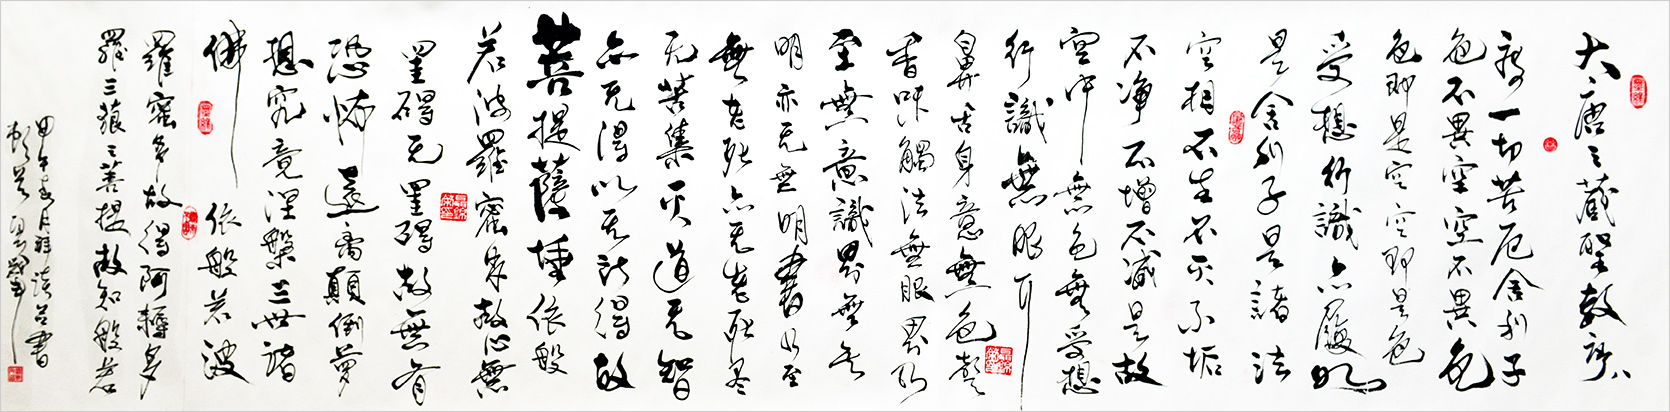 大唐三藏聖教序
一切苦厄舍利子
色不異空空不異色
色即是空空即是色
受想行識亦復如
是舍利子是諸法
空相不生不灭不垢
不净不增不减是故
空中無色無受想
行識無眼耳
鼻舌身意無色聲
香味觸法無眼界乃
至無意識界無无
明亦无無明盡乃至
無老死亦无老死尽
无苦集灭道无智
亦无得以无所得故
菩提薩埵依般
若波羅蜜多故心無
罣碍无罣碍故無有
恐怖遠離顛倒夢
想究竟涅槃三世諸
佛依般若波
羅蜜多故得阿耨多
羅三藐三菩提故知般若
甲午年月
書